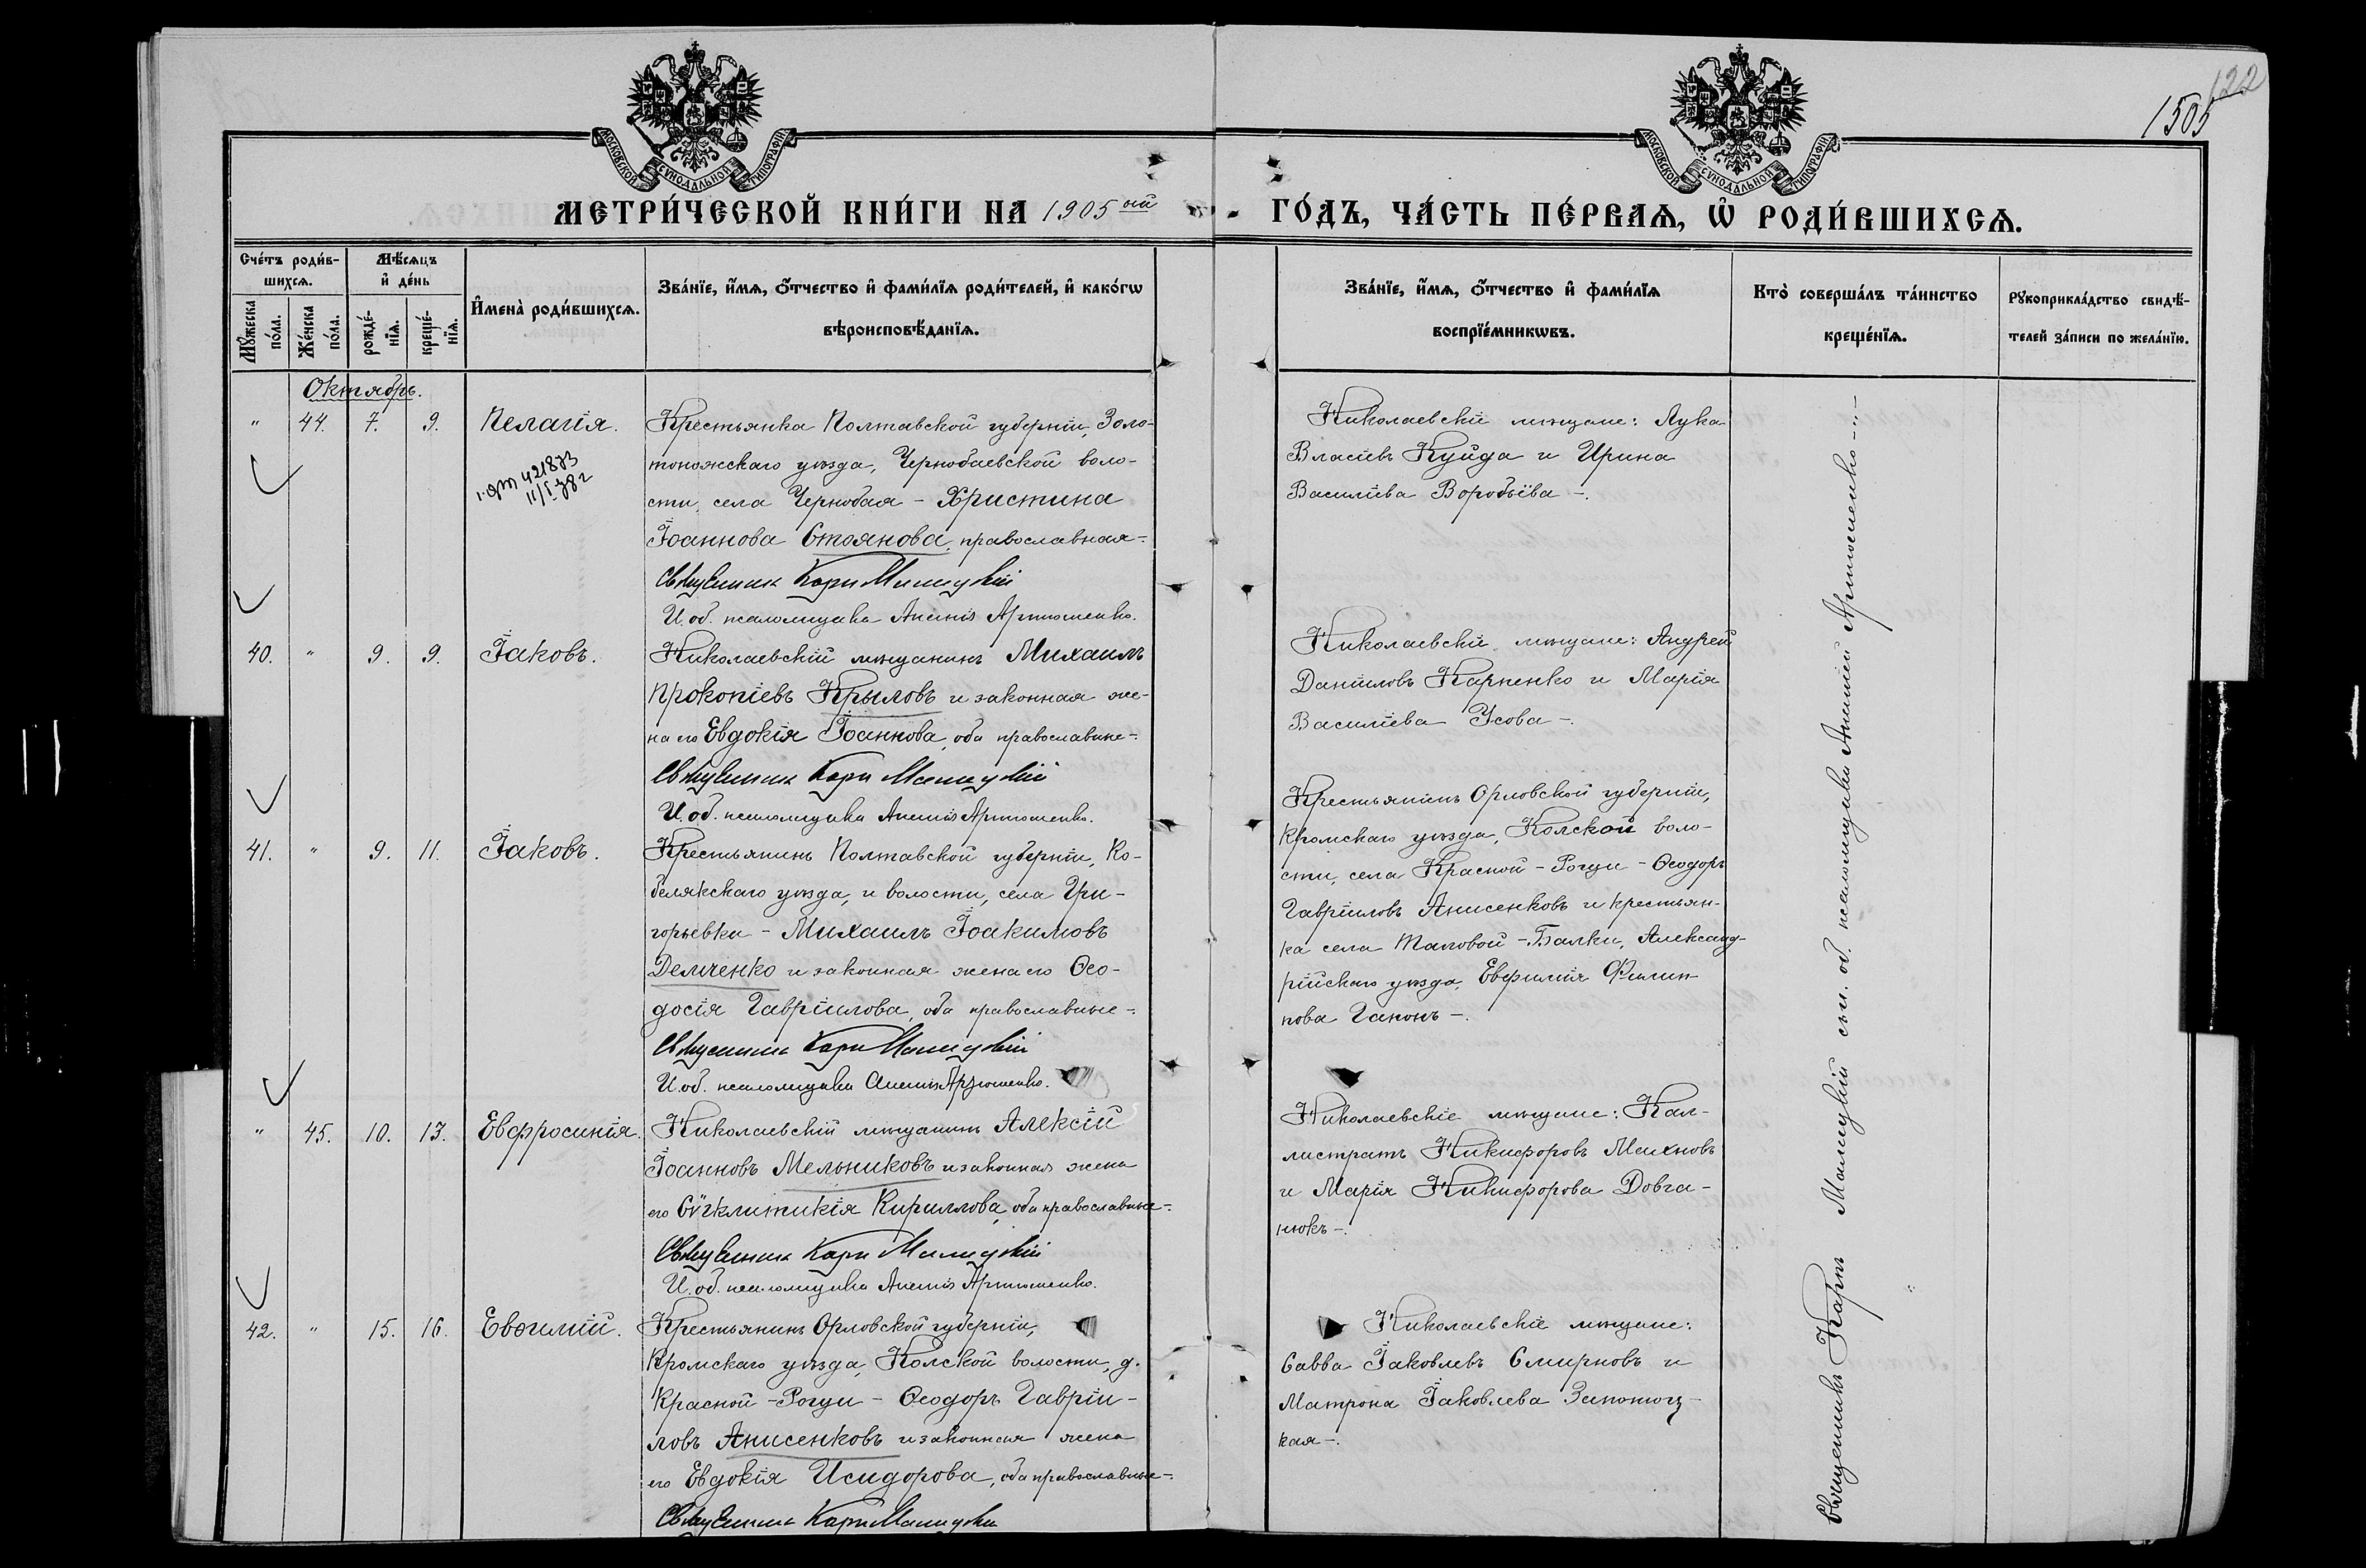 122
1505
МОСКОВСКОЙ СѴНОДАЛЬНОЙ ТИПОГРАФІИ
МОСКОВСКОЙ СѴНОДАЛЬНОЙ ТИПОГРАФІИ
МЕТРИ́ЧЕСКОЙ КНИ́ГИ НА 1905 ый ГО́ДЪ, ЧА́СТЬ ПЕ́РВАѦ, Ѡ҆ РОДИ́ВШИХСѦ.
Сче́тъ роди́в-
шихсѧ.
Мꙋ́жеска по́ла.
Же́нска по́ла.
Мѣ́сѧцъ
и҆ де́нь
рожде́-нїѧ.
креще́-нїѧ.
И҆мена̀ роди́вшихсѧ.
Зва́нїе, и҆́мѧ, ѻ҆́тчество и҆ фами́лїѧ роди́телей, и҆ како́гѡ
вѣроисповѣ́данїѧ.
Зва́нїе, и҆́мѧ, ѻ҆́тчество и҆ фами́лїѧ
воспрїе́мникѡвъ.
Кто̀ соверша́лъ та́инство
креще́нїѧ.
Рꙋкоприкла́дство свидѣ́-
телей за́писи по жела́нїю.
Октябрь.
" 44. 7. 9. Пелагія.
Крестьянка Полтавской губерніи, Золо-
тоножскаго уѣзда, Чернобаевской воло-
сти, села Чернобая - Христина
Іоаннова Стоянова, православная -
Священникъ Карпъ
И. об. псаломщика Ананій Артюшенко.
Николаевскіе мѣщане: Лука
Власіевъ Куйда и Ирина
Василіева Воробьёва -.
40. " 9. 9. Іаковъ.
Николаевскій мѣщанинъ Михаилъ
Прокопіевъ Крыловъ и законная же-
на его Евдокія Іоаннова, оба православные -
Священникъ Карпъ
И. об. псаломщика Ананій Артюшенко.
Николаевскіе мѣщане: Андрей
Даніиловъ Карпенко и Марія
Василіева Усова -.
41. " 9. 11. Іаковъ.
Крестьянинъ Полтавской губерніи, Ко-
белякскаго уѣзда, и волости, села Гри-
горьевки - Михаилъ Іоакимовъ
Демченко и законная жена его Ѳео-
досія Гавріилова, оба православные -
Священникъ Карпъ
И. об. псаломщика Ананій Артюшенко.
Крестьянинъ Орловской губерніи,
Кромскаго уѣзда, Колской воло-
сти, села Красной - Рогуи - Ѳеодоръ
Гавріиловъ Анисенковъ и крестьян-
ка села Балки, Александ-
рійскаго уѣзда, Евфимія Филип-
пова Гапонъ -.
" 45. 10. 13. Евфросинія.
Николаевскій мѣщанинъ Алексій
Іоанновъ Мельниковъ и законная жена
его Сѵгклитикія Кириллова, оба православные -
Священникъ Карпъ
И. об. псаломщика Ананій Артюшенко.
Николаевскіе мѣщане: Кал-
листратъ Никифоровъ
и Марія Никифорова Довга-
нюкъ -.
42. " 15. 16. Евѳимій.
Крестьянинъ Орловской губерніи,
Кромскаго уѣзда, Колской волости, д.
Красной - Рогуи - Ѳеодоръ Гавріи-
ловъ Анисенковъ и законная жена
его Евдокія Исидорова, оба православные -
Священникъ Карпъ
Николаевскіе мѣщане:
Савва Іаковлевъ Смирновъ и
Матрона Іаковлева
кая -.
Священникъ Карпъ съ и. об. псаломщика Ананіей Артюшенко -